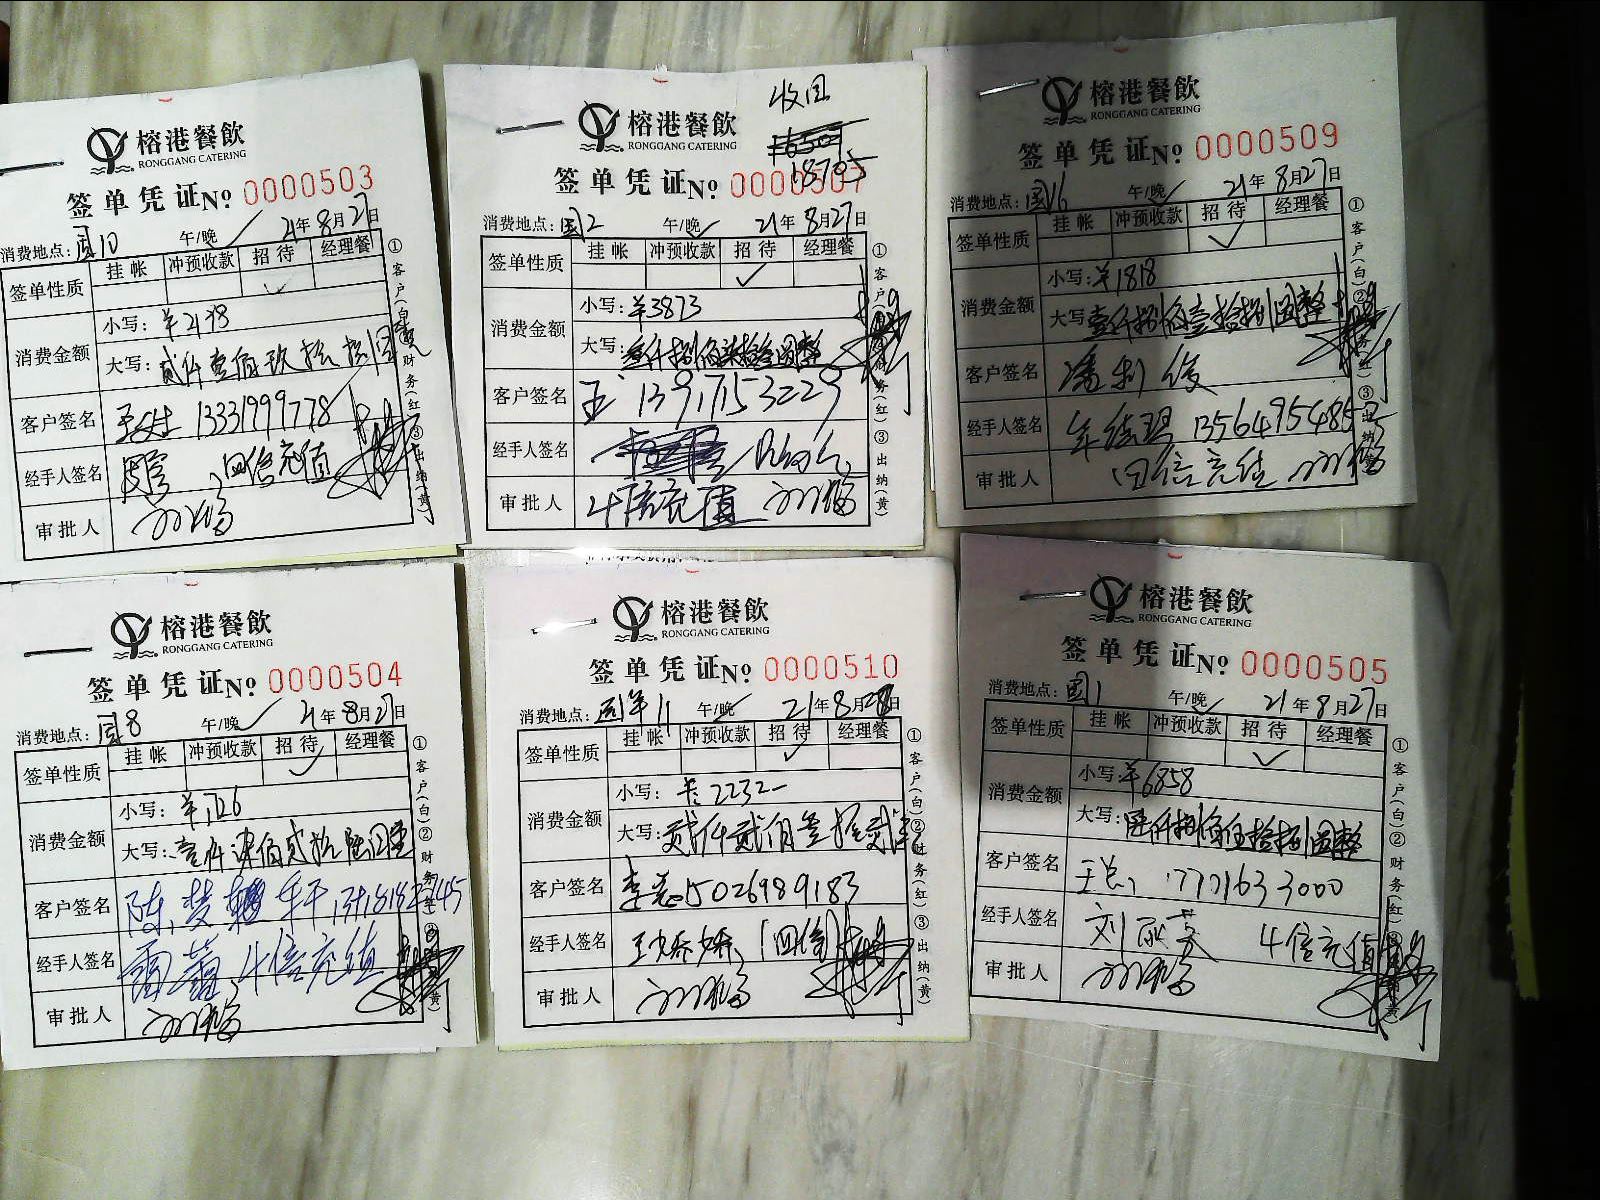 榕港餐飲
RONGGANG CATERING
签单凭证 No. 0000503
消费地点: 国10 午/晚 21年8月27日
签单性质 挂帐 冲预收款 招待 经理餐
消费金额 小写: ¥2198
大写: 贰仟壹佰玖拾捌圆整
客户签名 13331999778
经手人签名 四倍充值
审批人
①客户(白)②财务(红)③出纳(黄)
收回
18705
榕港餐飲
RONGGANG CATERING
签单凭证 No. 0000507
消费地点: 国2 午/晚 21年8月27日
签单性质 挂帐 冲预收款 招待 经理餐
消费金额 小写: ¥3873
大写: 叁仟捌佰柒拾叁圆整
客户签名 王 13917153229
经手人签名
审批人 4倍充值
①客户(白)②财务(红)③出纳(黄)
榕港餐飲
RONGGANG CATERING
签单凭证 No. 0000509
消费地点: 国16 午/晚 21年8月27日
签单性质 挂帐 冲预收款 招待 经理餐
消费金额 小写: ¥1818
大写: 壹仟捌佰壹拾捌圆整
客户签名 潘利俊
经手人签名
审批人 四倍充值
①客户(白)②财务(红)③出纳(黄)
榕港餐飲
RONGGANG CATERING
签单凭证 No. 0000504
消费地点: 国8 午/晚 21年8月27日
签单性质 挂帐 冲预收款 招待 经理餐
消费金额 小写: ¥1726
大写: 壹仟柒佰贰拾陆圆整
客户签名 陈
经手人签名 4倍充值
审批人
①客户(白)②财务(红)③出纳(黄)
榕港餐飲
RONGGANG CATERING
签单凭证 No. 0000510
消费地点: 午/晚 21年8月28日
签单性质 挂帐 冲预收款 招待 经理餐
消费金额 小写: 2232
大写: 贰仟贰佰叁拾贰
客户签名 李 15026989183
经手人签名 四倍
审批人
①客户(白)②财务(红)③出纳(黄)
榕港餐飲
RONGGANG CATERING
签单凭证 No. 0000505
消费地点: 国1 午/晚 21年8月27日
签单性质 挂帐 冲预收款 招待 经理餐
消费金额 小写: ¥6858
大写: 陆仟捌佰伍拾捌圆整
客户签名 王总 17717633000
经手人签名 刘 4倍充值
审批人
①客户(白)②财务(红)③出纳(黄)